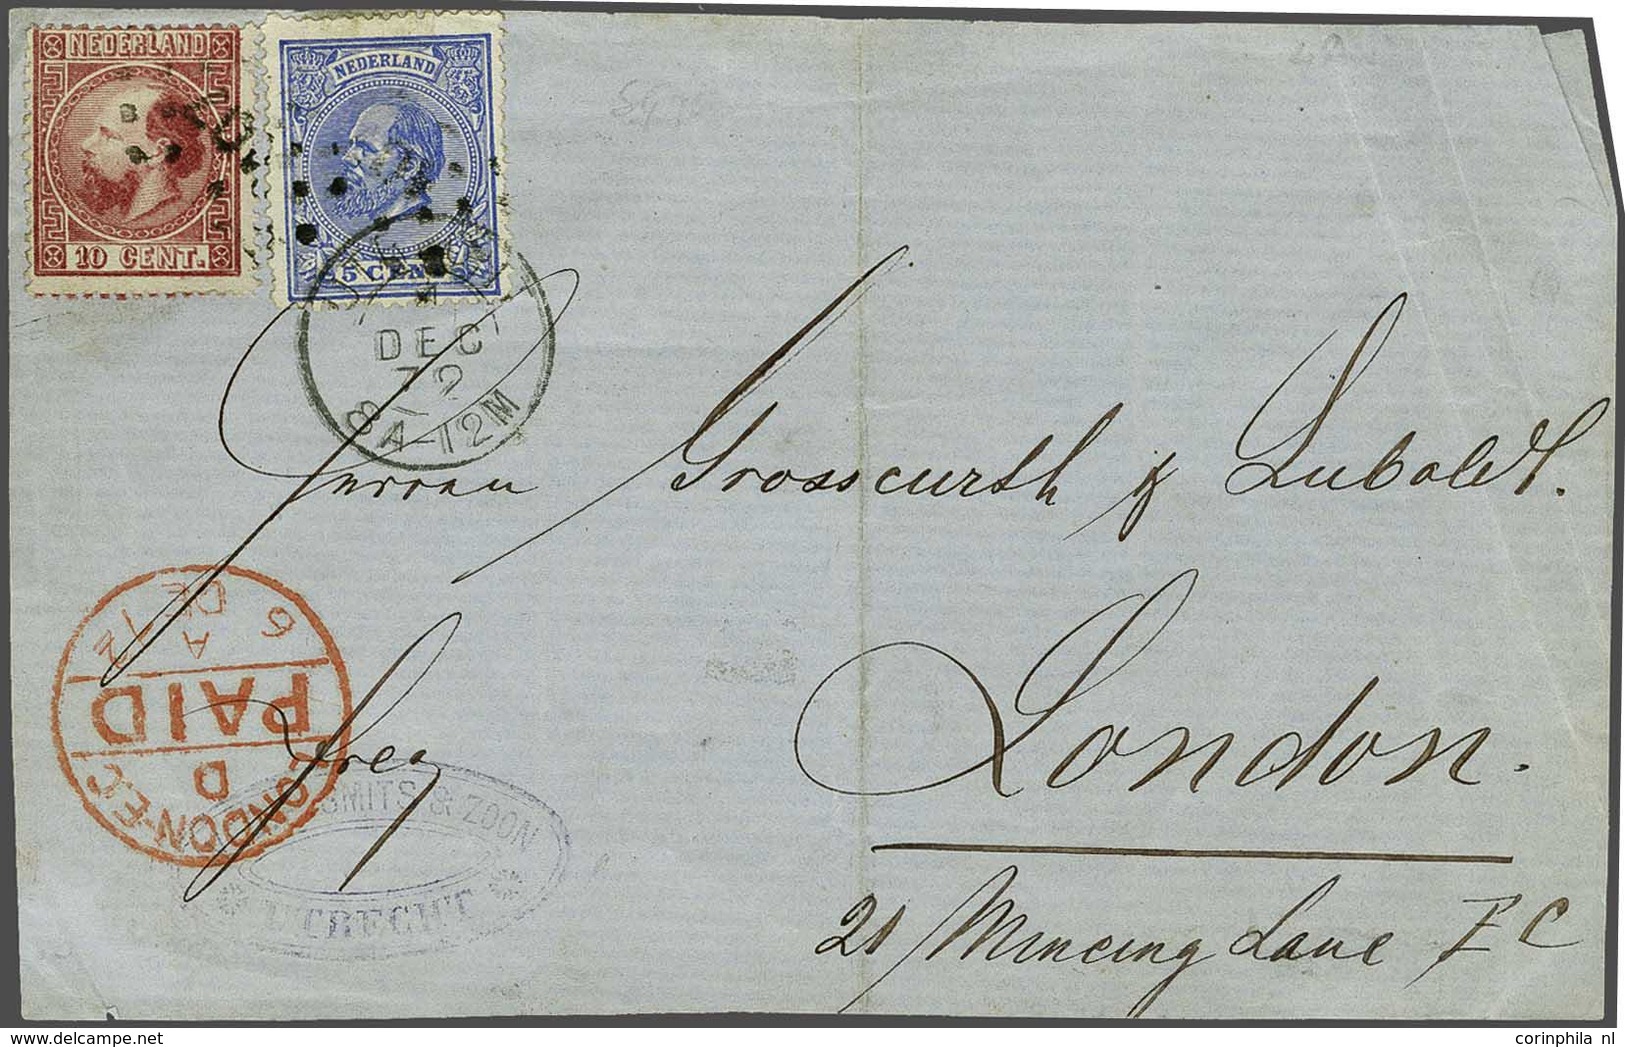 NEDERLAND
10 CENT.
NEDERLAND
5 CEN
DEC
72
8A-12M
Herren Grosscurth & Luboldt.
London.
21 Mincing Lane E C
free
LONDON-EC
D
PAID
A
6 DE 72
SMITS & ZOON
UTRECHT
corinphila nl